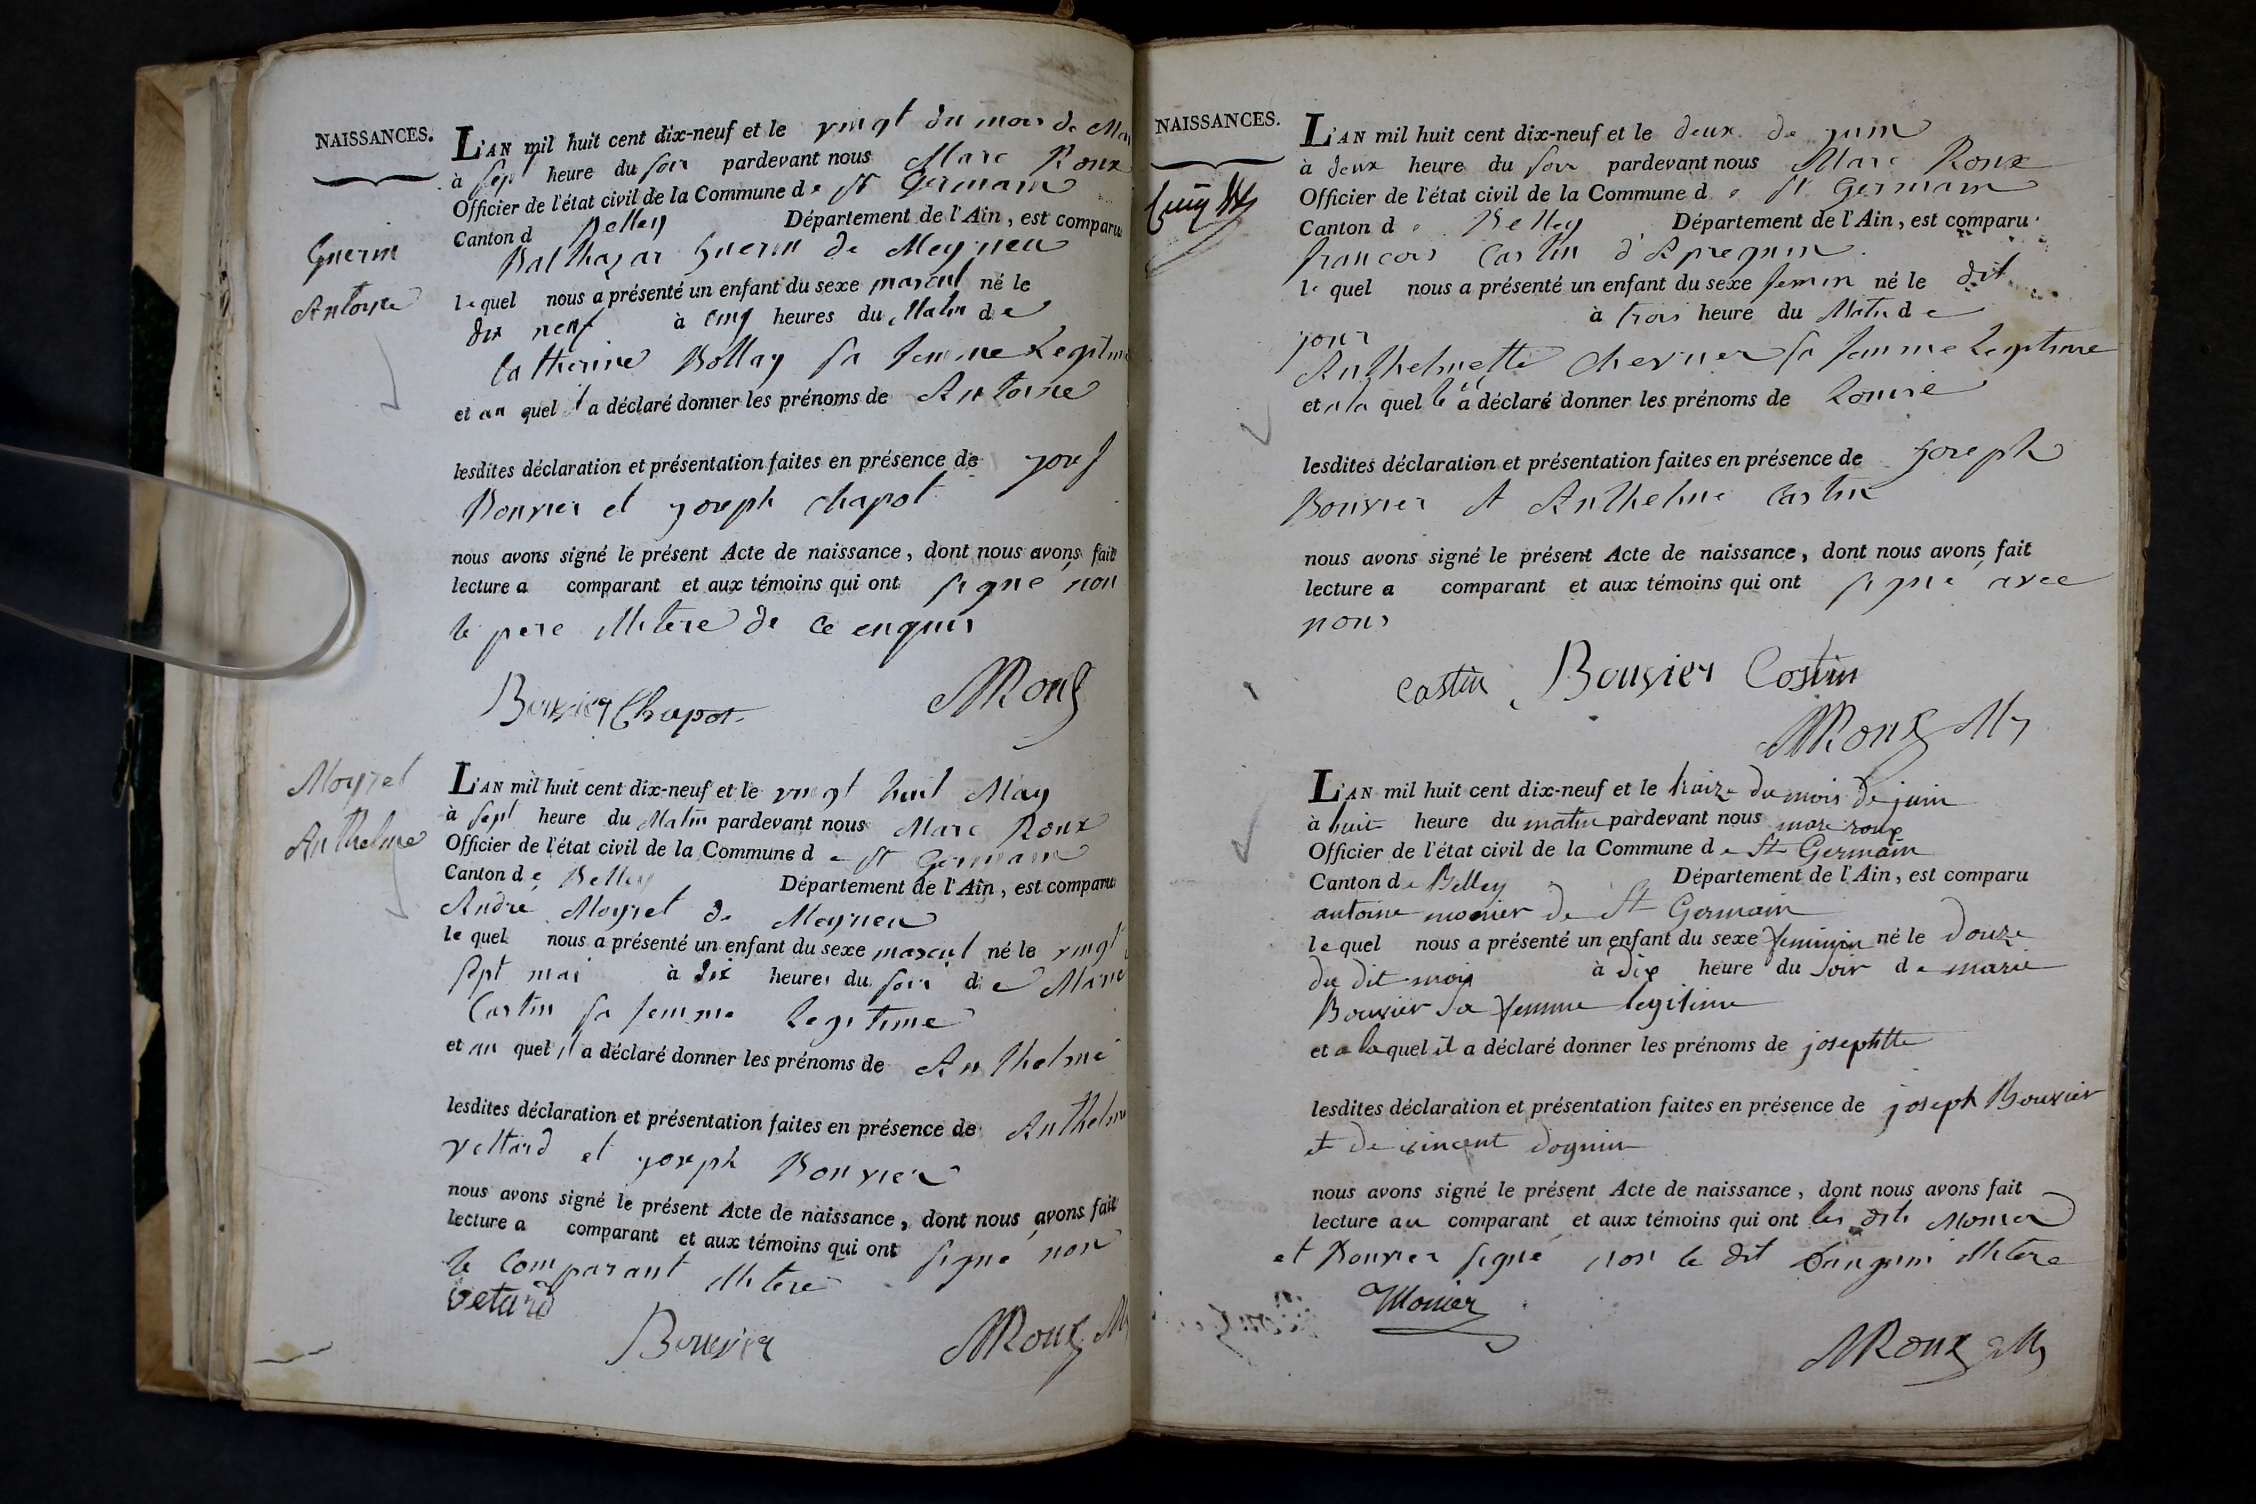 NAISSANCES.
L'AN mil huit cent dix-neuf et le vingt du mois de May
à sept heure du soir pardevant nous Marc Roux
Officier de l'état civil de la Commune de St Germain
Canton d Belley Département de l'Ain, est comparu
Guerin
Antoine
Balthazar Guerin de Meyrieu
lequel nous a présenté un enfant du sexe mascul né le
dix neuf à cinq heures du Matin de
Catherine Bollay sa femme Legitime
et au quel il a déclaré donner les prénoms de Antoine
lesdites déclaration et présentation faites en présence de josef
Bouvier et joseph chapot
nous avons signé le présent Acte de naissance, dont nous avons fait
lecture a comparant et aux témoins qui ont signé non
le pere illitere de ce enquis
Bouvier Chapot MRoux
Moyret
Anthelme
L'AN mil huit cent dix-neuf et le vingt huit May
à sept heure du Matin pardevant nous Marc Roux
Officier de l'état civil de la Commune de St Germain
Canton de Belley Département de l'Ain, est comparu
André Moyret de Meyrieu
lequel nous a présenté un enfant du sexe mascul né le vingt
sept mai à dix heures du soir de Marie
Castin sa femme Legitime
et au quel il a déclaré donner les prénoms de Anthelme
lesdites déclaration et présentation faites en présence de Anthelme
vettard et joseph Bouvier
nous avons signé le présent Acte de naissance, dont nous avons fait
lecture a comparant et aux témoins qui ont signé non
le comparant illitere
vetard
Bouvier MRoux
NAISSANCES.
L'AN mil huit cent dix-neuf et le deux de juin
à deux heure du soir pardevant nous Marc Roux
Officier de l'état civil de la Commune de St Germain
Canton de Belley Département de l'Ain, est comparu
francois Castin d'Apregnin
lequel nous a présenté un enfant du sexe femin né le dit
jour à trois heure du Matin de
Anthelmette chervier sa femme Legitime
et a la quelle a déclaré donner les prénoms de Louise
lesdites déclaration et présentation faites en présence de joseph
Bouvier et Anthelme Castin
nous avons signé le présent Acte de naissance, dont nous avons fait
lecture a comparant et aux témoins qui ont signé avec
nous
castin Bouvier Costin
MRoux
L'AN mil huit cent dix-neuf et le traize du mois de juin
à huit heure du matin pardevant nous marc roux
Officier de l'état civil de la Commune de St Germain
Canton de Belley Département de l'Ain, est comparu
antoine monier de St Germain
lequel nous a présenté un enfant du sexe feminin né le douze
du dit mois à dix heure du soir de marie
Bouvier sa femme legitime
et a la quel il a déclaré donner les prénoms de josephtte
lesdites déclaration et présentation faites en présence de joseph Bouvier
et de vincent dognin
nous avons signé le présent Acte de naissance, dont nous avons fait
lecture au comparant et aux témoins qui ont les dits Monier
et Bouvier signé non le dit illitere
Monier
MRoux